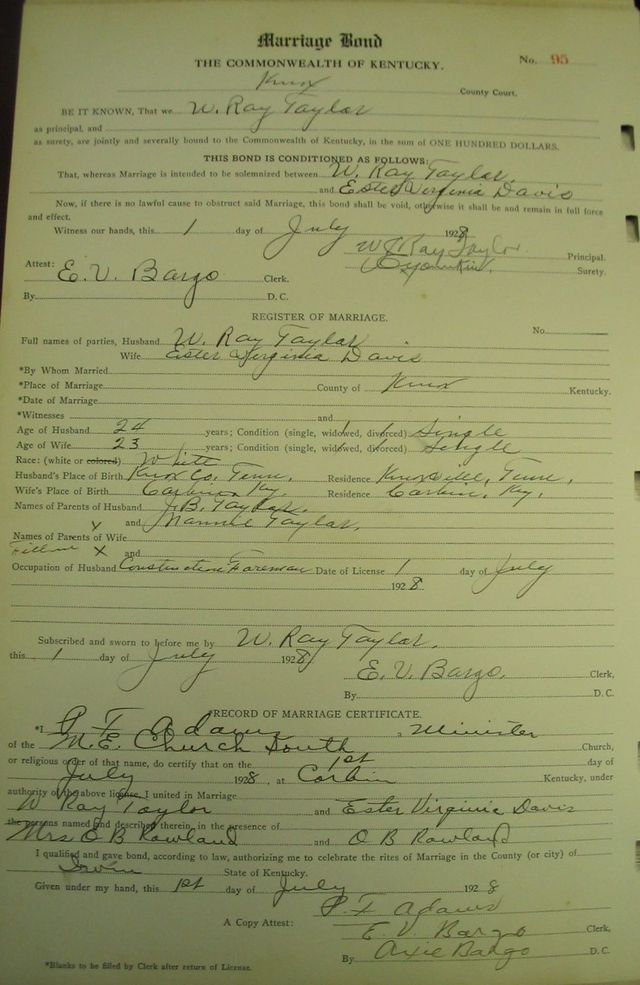 Marriage Bond
THE COMMONWEALTH OF KENTUCKY. No. 95
Knox County Court.
BE IT KNOWN, That we W. Ray Taylor
as principal, and
as surety, are jointly and severally bound to the Commonwealth of Kentucky, in the sum of ONE HUNDRED DOLLARS.
THIS BOND IS CONDITIONED AS FOLLOWS:
That, whereas Marriage is intended to be solemnized between W. Ray Taylor.
and Ester Virginia Davis
Now, if there is no lawful cause to obstruct said Marriage, this bond shall be void, otherwise it shall be and remain in full force
and effect.
Witness our hands, this 1 day of July 1928
W Ray Taylor Principal.
Surety.
Attest: E. V. Bargo Clerk.
By D. C.
REGISTER OF MARRIAGE.
No.
Full names of parties, Husband W. Ray Taylor.
Wife Ester Virginia Davis
*By Whom Married
*Place of Marriage County of Knox Kentucky.
*Date of Marriage
*Witnesses and
Age of Husband 24 years; Condition (single, widowed, divorced) Single
Age of Wife 23 years; Condition (single, widowed, divorced) Single
Race: (white or colored) White
Husband's Place of Birth Knox Co. Tenn. Residence Knoxville, Tenn.
Wife's Place of Birth Corbin Ky. Residence Corbin, Ky.
Names of Parents of Husband J. B. Taylor.
and Nannie Taylor.
Names of Parents of Wife X
X and
Occupation of Husband Construction Foreman Date of License 1 day of July
1928
Subscribed and sworn to before me by W. Ray Taylor.
this 1 day of July 1928
E. V. Bargo. Clerk,
By D. C.
*RECORD OF MARRIAGE CERTIFICATE.
*I P. F. Adams, a Minister
of the M. E. Church South Church,
or religious order of that name, do certify that on the 1st day of
July 1928, at Corbin Kentucky, under
authority of the above license, I united in Marriage
W Ray Taylor and Ester Virginia Davis
the persons named and described therein, in the presence of
Mrs O B Rowland and O B Rowland
I qualified and gave bond, according to law, authorizing me to celebrate the rites of Marriage in the County (or city) of
State of Kentucky.
Given under my hand, this 1st day of July 1928
P. F. Adams
A Copy Attest: E. V. Bargo Clerk,
By Arie Bargo D. C.
*Blanks to be filled by Clerk after return of License.